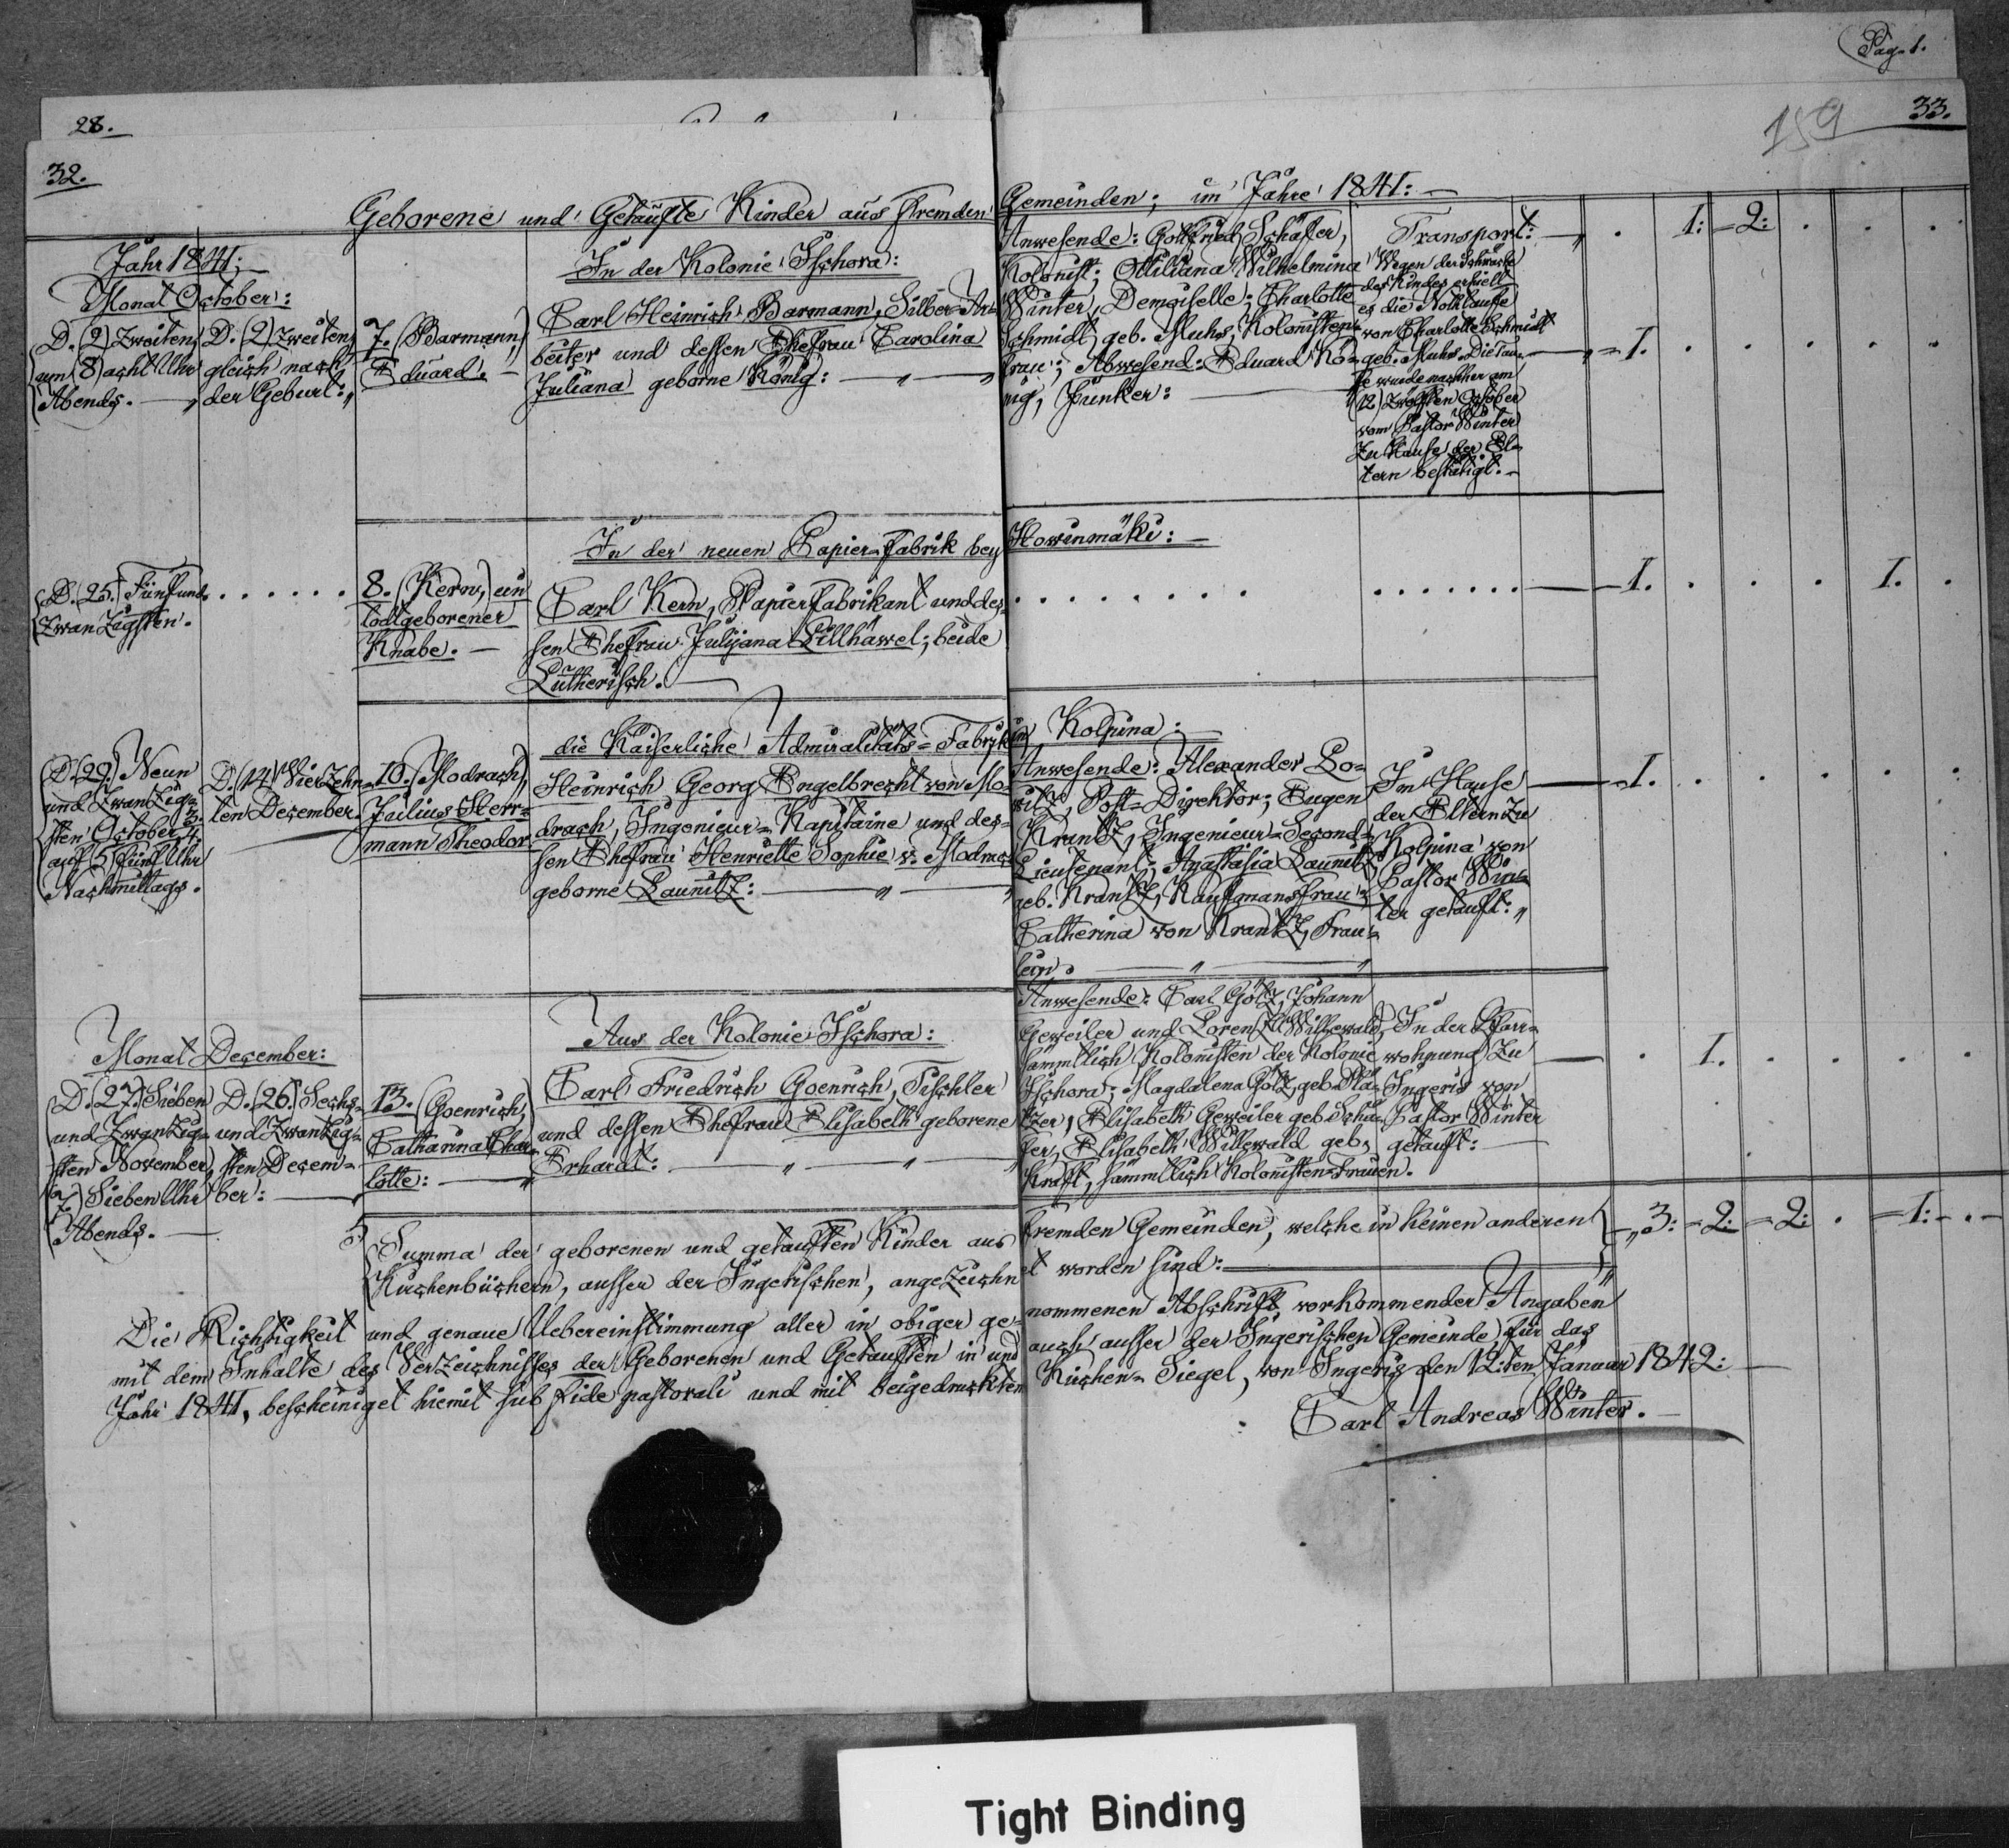 Pag. 1.
28.
159
33.
32.
Geborene und Getaufte Kinder aus fremden Gemeinden; im Jahre 1841: —
Jahr 1841;
Monat October:
D. (2) Zweiten
um (8) acht Uhr
Abends. —
D. (2) Zweiten
gleich nach
der Geburt:
7. (Barmann,)
Eduard. —
In der Kolonie Ischora:
Carl Heinrich Barmann, Silber-Ar-
beiter und dessen Ehefrau Carolina
Juliana geborne König: — „ —
Anwesende: Gottfried Schäfer,
Kolonist; Ottiliana Wilhelmina
Winter, Demoiselle; Charlotte
Schmidt, geb. Muhs, Kolonisten-
frau; Abwesend: Eduard Kö-
nig, Junker: —
Transport: — „ . 1: = 2: . . .
Wegen der Schwäche
des Kindes erhielt
es die Nothtaufe
von Charlotte Schmidt
geb. Muhs. Die Tau-
fe wurde nachher am
(12) Zwölften October
vom Pastor Winter
zu Hause der El-
tern bestätigt. —
— „ = 1. . . . . .
In der neuen Papier-Fabrik bey Howinmäki: —
D. (25.) Fünfund-
Zwanzigsten.
. . . . . .
8. (Kern,) ein
todtgeborener
Knabe. —
Carl Kern, Papierfabrikant und des-
sen Ehefrau Julijana Lillhäwel; beide
Lutherisch. —
. . . . . . . .
. . . . . . .
— 1. . . . 1. .
die Kaiserliche Admiralitäts-Fabrik in Kolpina: —
D. (29.) Neun
und Zwanzig-
sten October
auf (5) fünf Uhr
Nachmittags.
D. (14) Vierzehn-
ten December.
10. (Modrach,)
Julius Herr-
mann Theodor.
Heinrich Georg Engelbrecht von Mo-
drach, Ingenieur-Kapitaine und des-
sen Ehefrau Henriette Sophie v. Modrach
geborne Launitz: — „ —
Anwesende: Alexander Lo-
witz, Post-Direktor; Eugen
Krantz, Ingenieur-Second-
Lieutenant; Anastasia Launitz
geb. Krantz, Kaufmansfrau;
Catherina von Krantz, Frau-
lein. — „ —
Im Hause
der Eltern zu
Kolpina von
Pastor Win-
ter getauft: „
— 1. . . . . .
Monat December:
D. (27.) Sieben
und Zwanzig-
sten November,
(7.) Sieben Uhr
Abends. —
D. (26.) Sechs-
und Zwanzig-
sten Decem-
ber: —
13. (Goenrich,)
Catharina Char-
lotte: —
Aus der Kolonie Ischora:
Carl Friedrich Goenrich, Tischler
und dessen Ehefrau Elisabeth geborene
Erhardt: — „ — „ —
Anwesende: Carl Götz, Johann
Geweiler und Lorenz Willewald,
sämmtlich Kolonisten der Kolonie
Ischora; Magdalena Götz, geb. Pla-
tzer, Elisabeth Geweiler geb. Schä-
fer, Elisabeth Willewald geb.
Kraft, sämmtlich Kolonisten-Frauen.
In der Pfarr-
wohnung zu
Ingeris von
Pastor Winter
getauft: —
— . 1. . . . .
Summa der geborenen und getauften Kinder aus fremden Gemeinden, welche in keinen anderen
Kirchenbüchern, ausser der Ingerischen, angezeichnet worden sind: —
— „ 3: = 2: = 2: . = 1: - . -
Die Richtigkeit und genaue Uebereinstimmung aller in obiger ge- nommenen Abschrift vorkommender Angaben
mit dem Inhalte des Verzeichnisses der Geborenen und Getauften in und auch ausser der Ingerischen Gemeinde für das
Jahr 1841, bescheiniget hiemit sub fide pastorali und mit beigedrucktem Kirchen-Siegel, von Ingeris den 12:ten Januar 1842: —
Carl Andreas Winter. —
Tight Binding